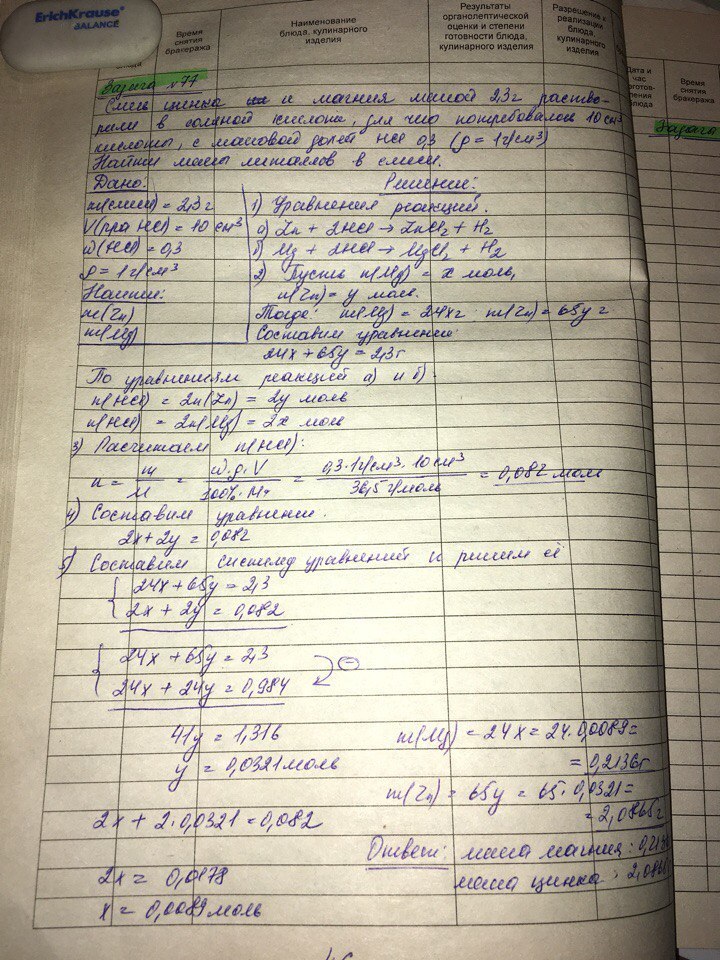 ErichKrause®
BALANCE
Время снятия бракеража
Наименование блюда, кулинарного изделия
Результаты органолептической оценки и степени готовности блюда, кулинарного изделия
Разрешение к реализации блюда, кулинарного изделия
Дата и час
блюда
Время снятия бракеража
Задача №77
Задача
Смесь цинка и магния массой 2,3г раство-
рили в соляной кислоте, для чего потребовалось 10 см³
кислоты, с массовой долей HCl 0,3 (ρ = 1г/см³)
Найти массы металлов в смеси.
Дано:
m(смеси) = 2,3г
V(р-ра HCl) = 10 см³
ω(HCl) = 0,3
ρ = 1г/см³
Найти:
m(Zn)
m(Mg)
Решение:
1) Уравнения реакций.
а) Zn + 2HCl → ZnCl₂ + H₂
б) Mg + 2HCl → MgCl₂ + H₂
2) Пусть n(Mg) = x моль,
n(Zn) = y моль.
Тогда: m(Mg) = 24x г m(Zn) = 65y г
Составим уравнение:
24x + 65y = 2,3г
По уравнениям реакций а) и б):
n(HCl) = 2n(Zn) = 2y моль
n(HCl) = 2n(Mg) = 2x моль
3) Расчитаем n(HCl):
n = m/M = ω·ρ·V/100%·Mr = 0,3·1г/см³·10см³/36,5г/моль = 0,082 моль
4) Составим уравнение.
2x + 2y = 0,082
5) Составим систему уравнений и решим её
24x + 65y = 2,3
2x + 2y = 0,082
24x + 65y = 2,3
24x + 24y = 0,984
41y = 1,316
y = 0,0321 моль
2x + 2·0,0321 = 0,082
2x = 0,0178
x = 0,0089 моль
m(Mg) = 24x = 24·0,0089 =
= 0,2136г
m(Zn) = 65y = 65·0,0321 =
= 2,0865г
Ответ: масса магния: 0,2136
масса цинка: 2,0865